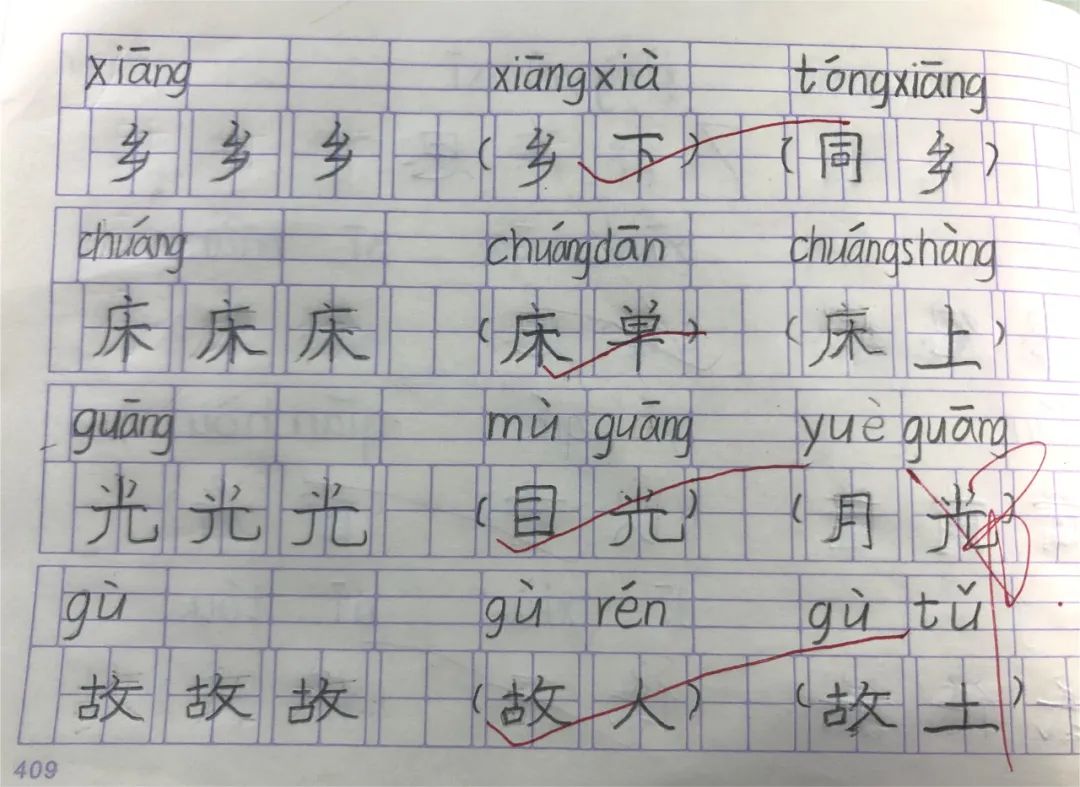 xiāng xiāngxià tóngxiāng
乡 乡 乡 (乡 下) (同 乡)
chuáng chuángdān chuángshàng
床 床 床 (床 单) (床 上)
guāng mù guāng yuè guāng
光 光 光 (目 光) (月 光)
gù gù rén gù tǔ
故 故 故 (故 人) (故 土)
409